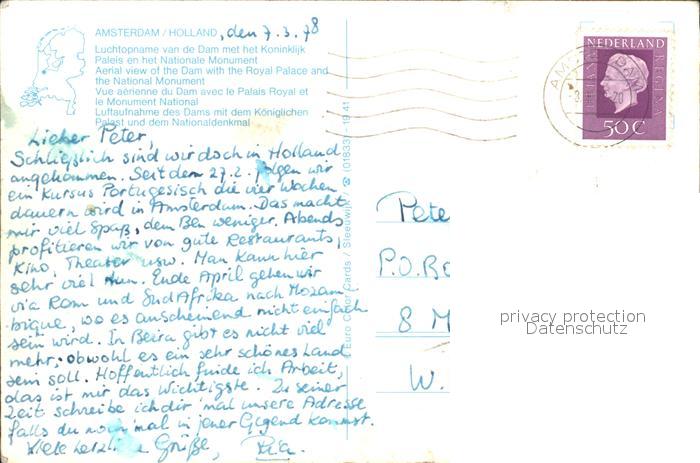 AMSTERDAM / HOLLAND, den 7.3.78
Luchtopname van de Dam met het Koninklijk
Paleis en het Nationale Monument
Aerial view of the Dam with the Royal Palace and
the National Monument
Vue aérienne du Dam avec le Palais Royal et
le Monument National
Luftaufnahme des Dams mit dem Königlichen
Palast und dem Nationaldenkmal
Lieber Peter,
Schließlich sind wir doch in Holland
angekommen. Seit dem 27.2. folgen wir
ein Kursus Portugesisch die vier Wochen
dauern wird in Amsterdam. Das macht
mir viel Spaß, dem Ben weniger. Abends
profitieren wir von gute Restaurants,
Kino, Theater usw. Man kann hier
sehr viel tun. Ende April gehen wir
via Rom und Süd Afrika nach Mozam-
bique, wo es anscheinend nicht einfach
sein wird. In Beira gibt es nicht viel
mehr, obwohl es ein sehr schönes Land
sein soll. Hoffentlich finde ich Arbeit,
das ist mir das Wichtigste. Zu seiner
Zeit schreibe ich dir 'mal unsere Adresse
falls du noch 'mal in jener Gegend kommst.
Viele herzliche Grüße, Ria.
Euro Color Cards / Sleeuwijk ☎ (01833) - 19 41
NEDERLAND
JULIANA REGINA
50 C
Pete
P.O. Bo
8 M
W.
privacy protection
Datenschutz